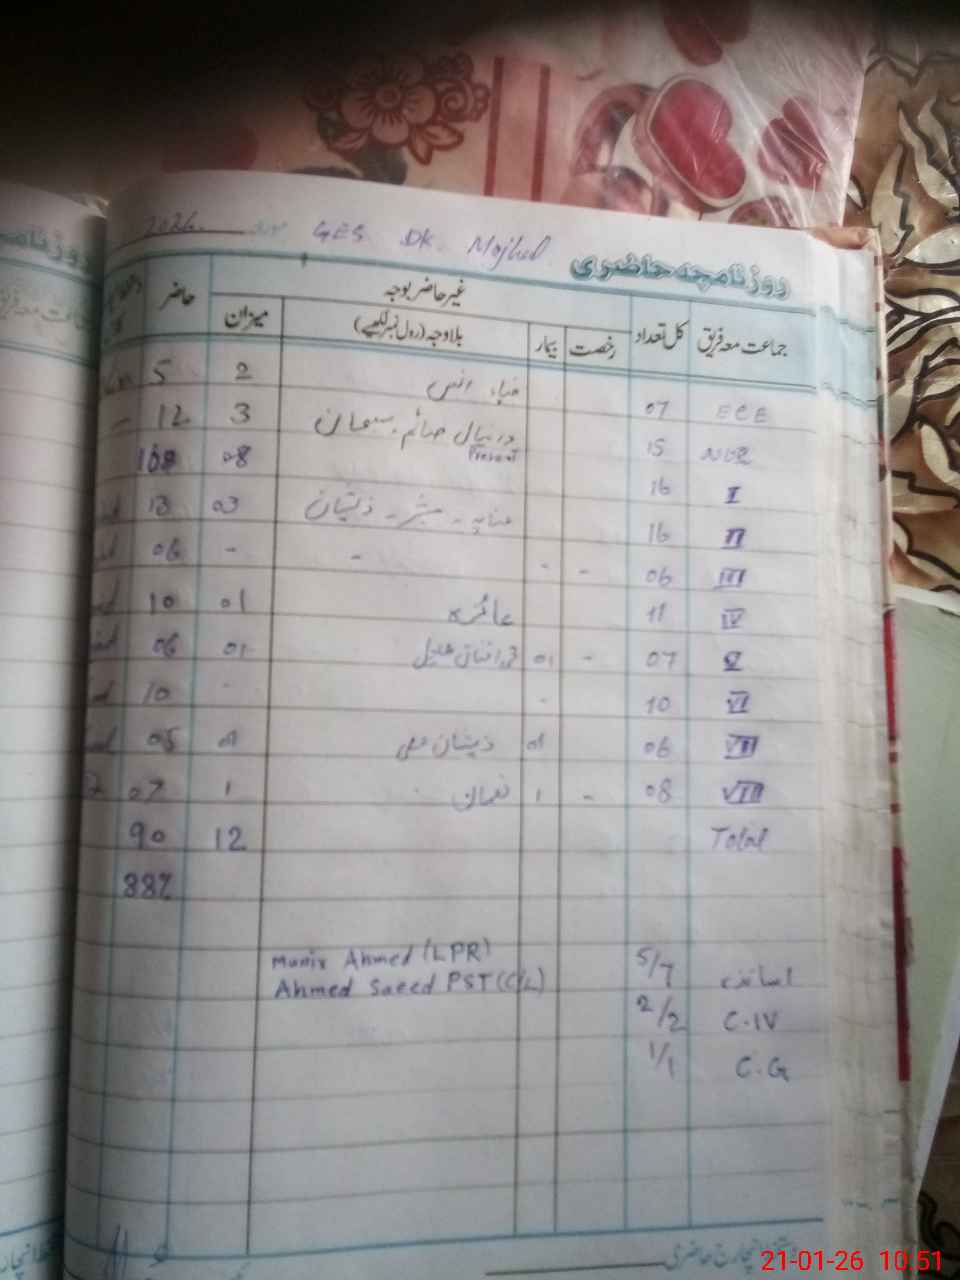 2026. مورخہ GES DK. Mojhel
روزنامچہ حاضری
جماعت معہ فریق کل تعداد غیر حاضر بوجہ حاضر
رخصت بیمار بلاوجہ (رول نمبر لکھیے) میزان
ECE 07 ضیاء انس 2 5
NUR 15 دانیال صائم سبحان 3 12
I 16 Present 08 108
II 16 مبشر - ذیشان 03 13
III 06 - - - - 06
IV 11 عائزہ 01 10
V 07 - 01 01 06
VI 10 - - 10
VII 06 01 ذیشان علی 01 05
VIII 08 - 1 نعمان 1 07
Total 12 90
88%
Munir Ahmed (LPR)
اساتذہ 5/7 Ahmed Saeed PST (C/L)
C.IV 2/2
C.G 1/1
دستخط انچارج حاضری
21-01-26 10:51